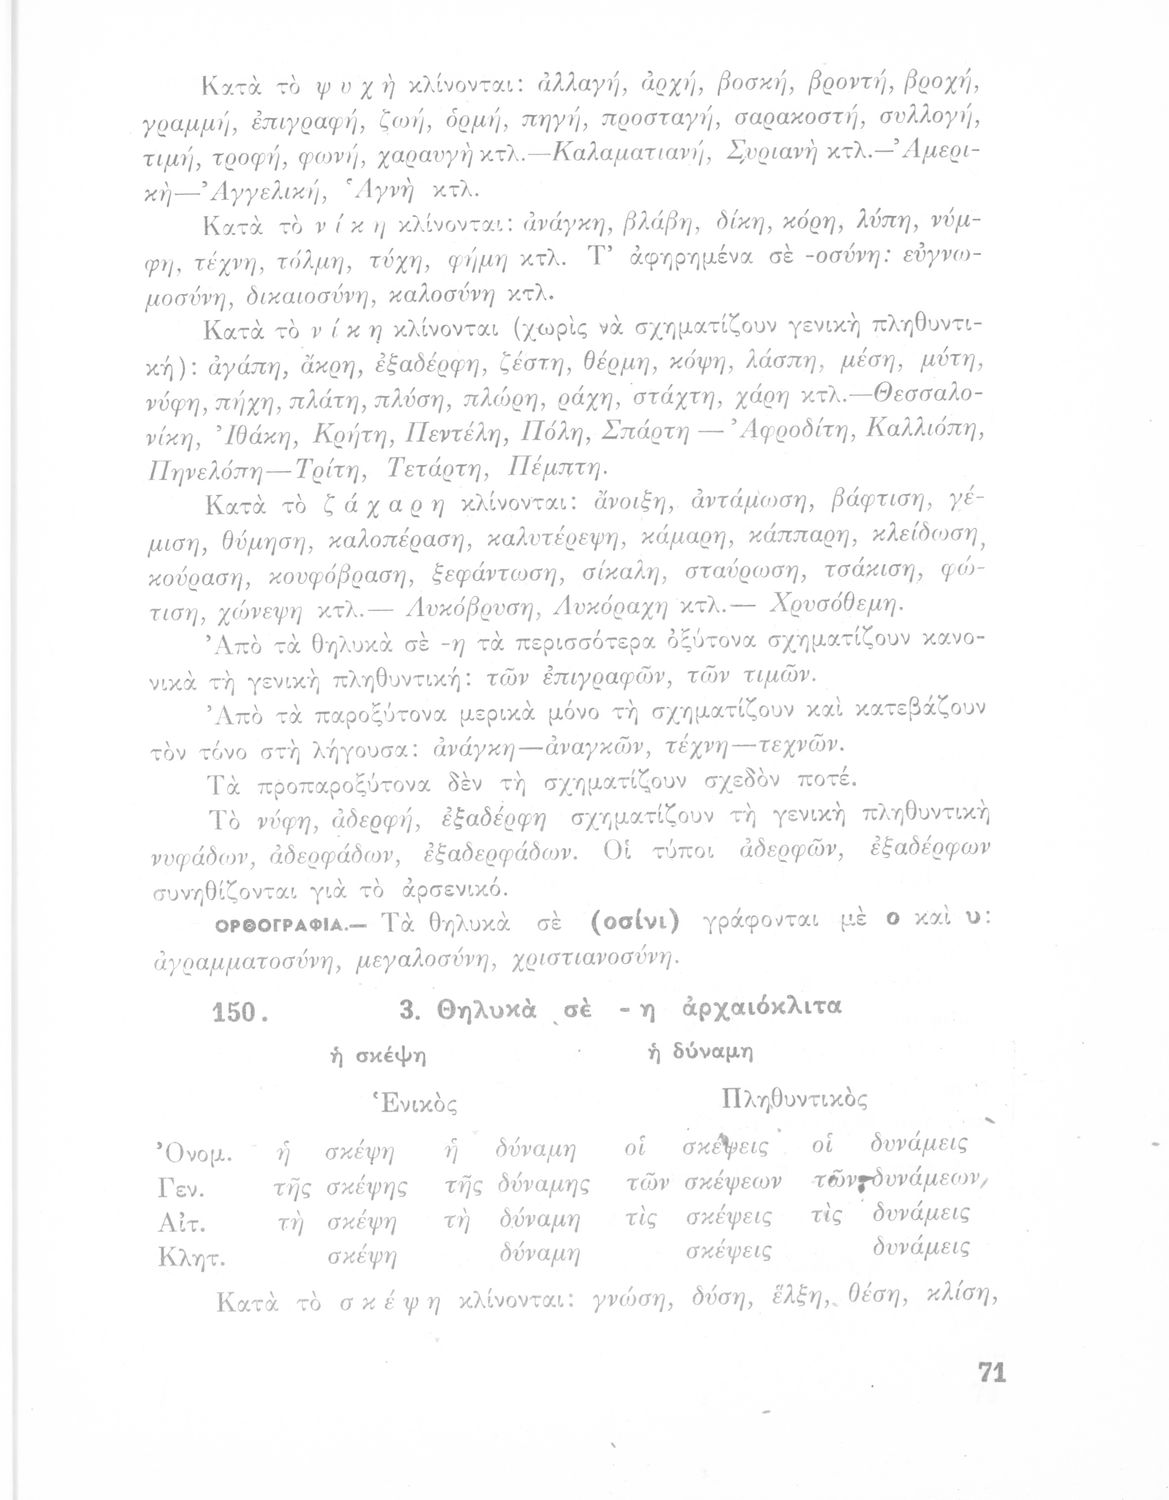 Κατὰ τὸ ψυχὴ κλίνονται: ἀλλαγή, ἀρχή, βοσκή, βροντή, βροχή,
γραμμή, ἐπιγραφή, ζωή, ὁρμή, πηγή, προσταγή, σαρακοστή, συλλογή,
τιμή, τροφή, φωνή, χαραυγὴ κτλ.—Καλαματιανή, Συριανὴ κτλ.—Ἀμερι-
κὴ—Ἀγγελική, Ἁγνὴ κτλ.
Κατὰ τὸ νίκη κλίνονται: ἀνάγκη, βλάβη, δίκη, κόρη, λύπη, νύμ-
φη, τέχνη, τόλμη, τύχη, φήμη κτλ. Τ’ ἀφηρημένα σὲ -οσύνη: εὐγνω-
μοσύνη, δικαιοσύνη, καλοσύνη κτλ.
Κατὰ τὸ νίκη κλίνονται (χωρὶς νὰ σχηματίζουν γενικὴ πληθυντι-
κή): ἀγάπη, ἄκρη, ἐξαδέρφη, ζέστη, θέρμη, κόψη, λάσπη, μέση, μύτη,
νύφη, πήχη, πλάτη, πλύση, πλώρη, ράχη, στάχτη, χάρη κτλ.—Θεσσαλο-
νίκη, Ἰθάκη, Κρήτη, Πεντέλη, Πόλη, Σπάρτη — Ἀφροδίτη, Καλλιόπη,
Πηνελόπη—Τρίτη, Τετάρτη, Πέμπτη.
Κατὰ τὸ ζάχαρη κλίνονται: ἄνοιξη, ἀντάμωση, βάφτιση, γέ-
μιση, θύμηση, καλοπέραση, καλυτέρεψη, κάμαρη, κάππαρη, κλείδωση,
κούραση, κουφόβραση, ξεφάντωση, σίκαλη, σταύρωση, τσάκιση, φώ-
τιση, χώνεψη κτλ.— Λυκόβρυση, Λυκόραχη κτλ.— Χρυσόθεμη.
Ἀπὸ τὰ θηλυκὰ σὲ -η τὰ περισσότερα ὀξύτονα σχηματίζουν κανο-
νικὰ τὴ γενικὴ πληθυντική: τῶν ἐπιγραφῶν, τῶν τιμῶν.
Ἀπὸ τὰ παροξύτονα μερικὰ μόνο τὴ σχηματίζουν καὶ κατεβάζουν
τὸν τόνο στὴ λήγουσα: ἀνάγκη—ἀναγκῶν, τέχνη—τεχνῶν.
Τὰ προπαροξύτονα δὲν τὴ σχηματίζουν σχεδὸν ποτέ.
Τὸ νύφη, ἀδερφή, ἐξαδέρφη σχηματίζουν τὴ γενικὴ πληθυντικὴ
νυφάδων, ἀδερφάδων, ἐξαδερφάδων. Οἱ τύποι ἀδερφῶν, ἐξαδέρφων
συνηθίζονται γιὰ τὸ ἀρσενικό.
ΟΡΘΟΓΡΑΦΙΑ.— Τὰ θηλυκὰ σὲ (οσίνι) γράφονται μὲ ο καὶ υ:
ἀγραμματοσύνη, μεγαλοσύνη, χριστιανοσύνη.
150. 3. Θηλυκὰ σὲ -η ἀρχαιόκλιτα
ἡ σκέψη ἡ δύναμη
Ἑνικὸς Πληθυντικὸς
Ὀνομ. ἡ σκέψη ἡ δύναμη οἱ σκέψεις οἱ δυνάμεις
Γεν. τῆς σκέψης τῆς δύναμης τῶν σκέψεων τῶν δυνάμεων
Αἰτ. τὴ σκέψη τὴ δύναμη τὶς σκέψεις τὶς δυνάμεις
Κλητ. σκέψη δύναμη σκέψεις δυνάμεις
Κατὰ τὸ σκέψη κλίνονται: γνώση, δύση, ἕλξη, θέση, κλίση,
71